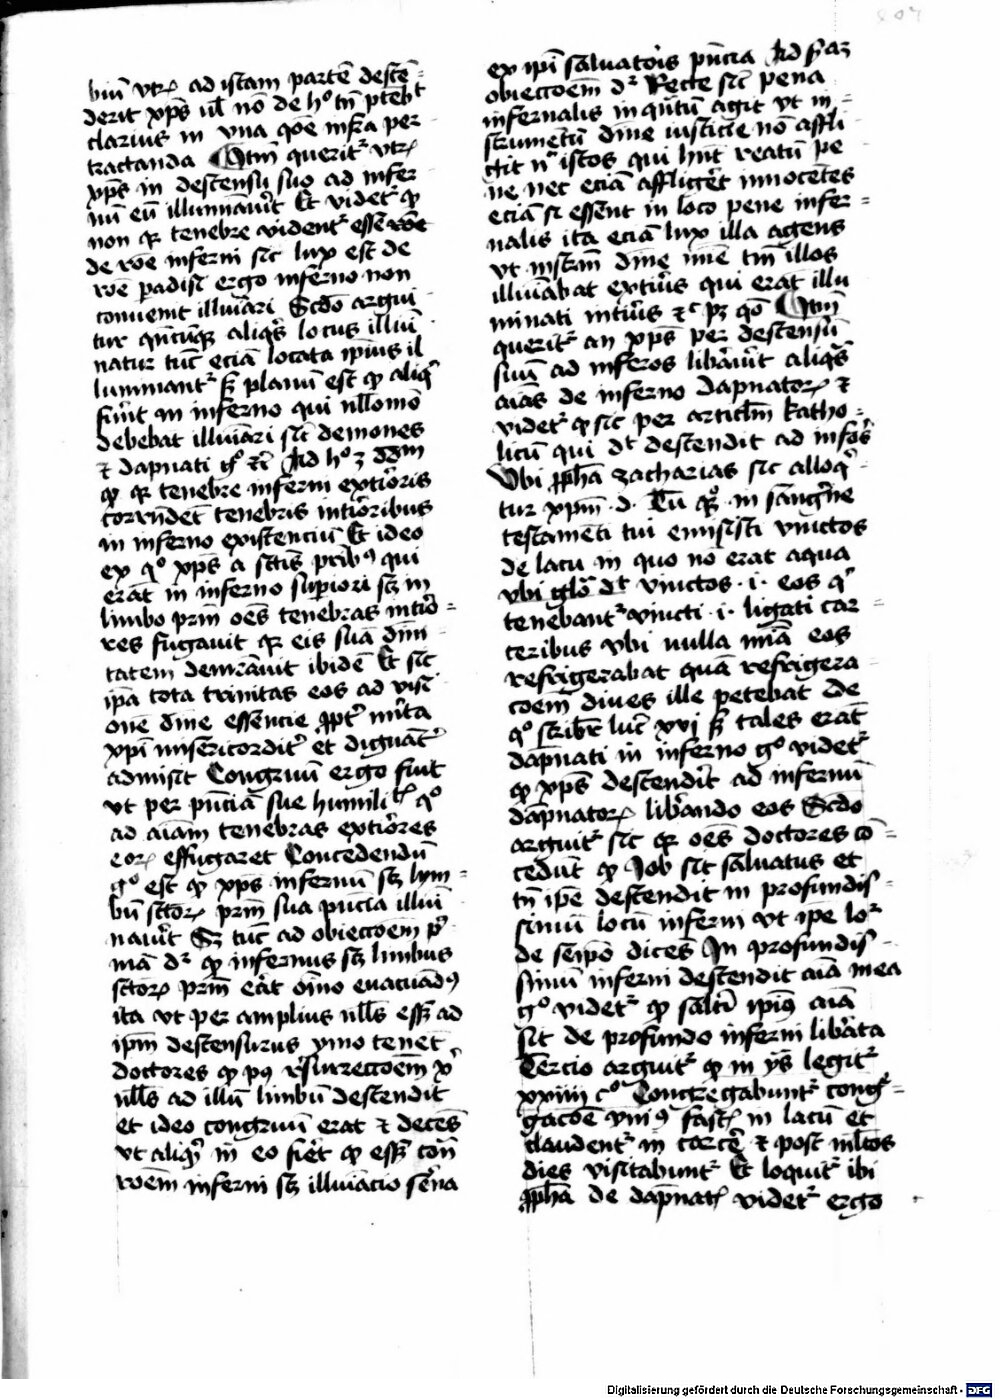 biū vtrꝫ ad istam partē descē-
derit xp̄s ul' nō de hᵒ tn̄ ptebit
clarius in vna qōe infra per
tractanda Itm̄ queritʳ vtrꝫ
xp̄s in descensu suo ad infer
nū eū illuīauit Et videtʳ ꝙ
non qꝛ tenebre videntʳ esse
de rōe inferni sic lux est de
rōe padisi ergo inferno non
conuenit illuīari Scdō argui
tur aliqͥs locus illuī
natur tūc eciā locata ip̄ius il
luminantʳ sꝫ planū est ꝙ aliqͥ
fuīt in inferno qui nll̄omō
debebāt illuīari sic demones
⁊ dapnati gᵒ ⁊c̄ Ad hᵒ
ꝙ qꝛ tenebre inferni extīoris
corrn̄dēt tenebris intīoribus
in inferno existenciū Et ideo
ex qᵒ xp̄s a sctīs prībꝰ qui
erāt in inferno supiori sꝫ in
limbo prm̄ oēs tenebras intīo-
res fugauit qꝛ eis suā dīni
tatem demr̄auit ibidē Et sic
ip̄a tota trinitas eos ad visi
onē dīne essencie ꝓptʳ mīta
xp̄i misericorditʳ et dignātʳ
admisit Congruū ergo fuit
vt per pn̄ciā sue humīlitꝫ qᵒ
ad aīam tenebras extīores
eorꝫ effugaret Concedendū
gᵒ est ꝙ xp̄s infernū sꝫ lym-
bū sctōrꝫ prm̄ sua pn̄cia illuī
nauit Sꝫ tūc ad obiectōem pʳ
mā dʳ ꝙ infernus sꝫ limbus
sctōrꝫ prm̄ erāt oīno euacuādꝰ
ita vt per amplius nll̄s esset ad
ip̄m descensurus ymo tenēt
doctores ꝙ pꝰ rīsurrectōem xͥ
nll̄s ad illū limbū descendit
et ideo congruū erat ⁊ decēs
vt aliqͥ in eo fierēt ꝙ essēt cōn̄
rōem inferni sꝫ illuīacio sērna
ex ip̄i saluatoris pn̄cia Ad
obiectōem dʳ Recte sic pena
infernalis in qn̄tū agit vt in-
strumētū dīne iusticie nō affli
git nͥ istos qui hn̄t reatū pe
ne nec eciā affligēt innocētes
eciā si essent in loco pene infer-
nalis ita eciā lux illa agens
vt instrm̄ dīne tm̄ illos
illuīabat extīus qui erāt illu
minati intīus ⁊c pꝫ qō Itm̄
queritʳ an xp̄s per descensū
suū ad inferos libāuit aliqͣs
aīas de inferno dapnatorꝫ ⁊
videtʳ ꝙ sic per articlm̄ katho-
licū qui dͭ descendit ad infos
Vbi ꝓph̄a zacharias sic alloqͥ
tur xpm̄ .d. Tu qᵒꝫ in sangͥne
testamēti tui emisisti vinctos
de lacu in quo nō erat aqua
vbi glō dͭ vinctos .i. eos qͥ
tenebantʳ vincti .i. ligati car-
ceribus vbi nulla mīa eos
refrigerabat quā refrigera
cōem diues ille petebat De
qᵒ scribitʳ luc̄ xvi sꝫ tales erāt
dapnati in inferno gᵒ videtʳ
ꝙ xp̄s descendit ad infernū
dapnatorꝫ libando eos Scdō
arguitʳ sic qꝛ oēs doctores cō-
cedūt ꝙ Job sit saluatus et
tn̄ ip̄e descendit in profundis-
simū locū inferni vt ip̄e loʳ
de seip̄o dicēs In profundis-
simū inferni descendit aīa mea
gᵒ videtʳ ꝙ saltī ip̄iꝰ aīa
sit de profundo inferni libata
Tercio arguitʳ ꝙ in ys̄ legitʳ
xxiiii cᵒ Congregabuntʳ congʳ-
gacōe vniꝰ fasc̄ in lacū et
claudentʳ in carcē ⁊ post ml̄tos
dies visitabuntʳ Et loquitʳ ibi
ꝓph̄a de dapnatꝫ videtʳ ergo
Digitalisierung gefördert durch die Deutsche Forschungsgemeinschaft - DFG